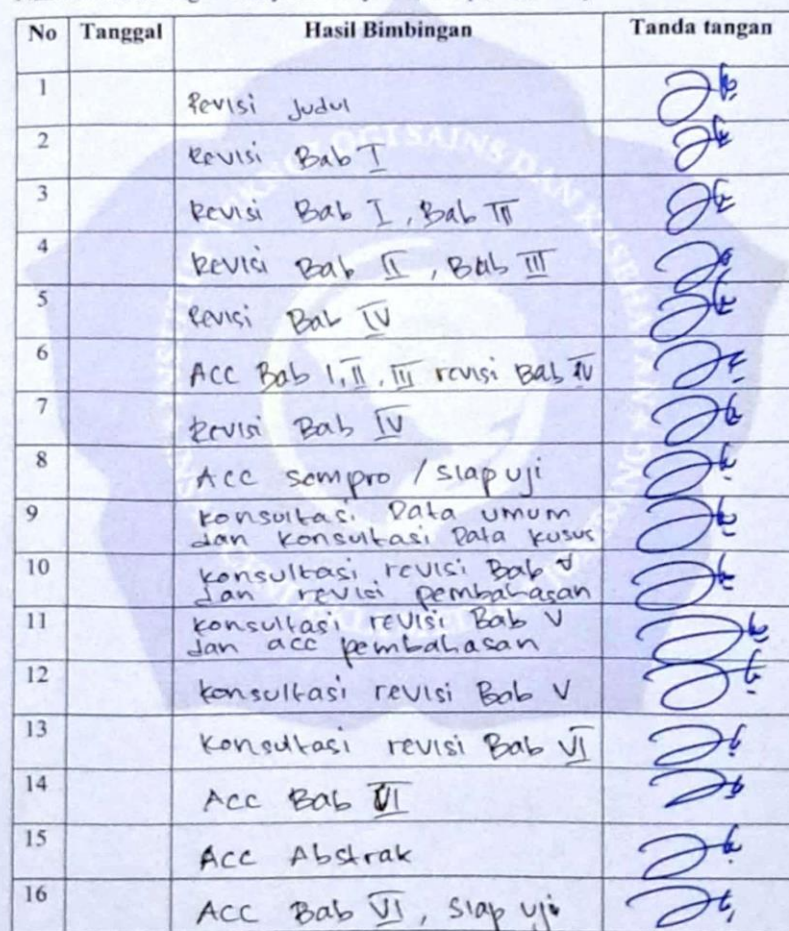 No Tanggal Hasil Bimbingan Tanda tangan
1 Revisi Judul
2 Revisi Bab I
3 Revisi Bab I, Bab II
4 Revisi Bab II, Bab III
5 Revisi Bab IV
6 ACC Bab I, II, III revisi Bab IV
7 Revisi Bab IV
8 ACC sempro / siap uji
9 konsultasi Data umum
dan konsultasi Data kusus
10 konsultasi revisi Bab V
dan revisi pembahasan
11 konsultasi revisi Bab V
dan acc pembahasan
12 konsultasi revisi Bab V
13 konsultasi revisi Bab VI
14 Acc Bab VI
15 Acc Abstrak
16 ACC Bab VI, siap uji